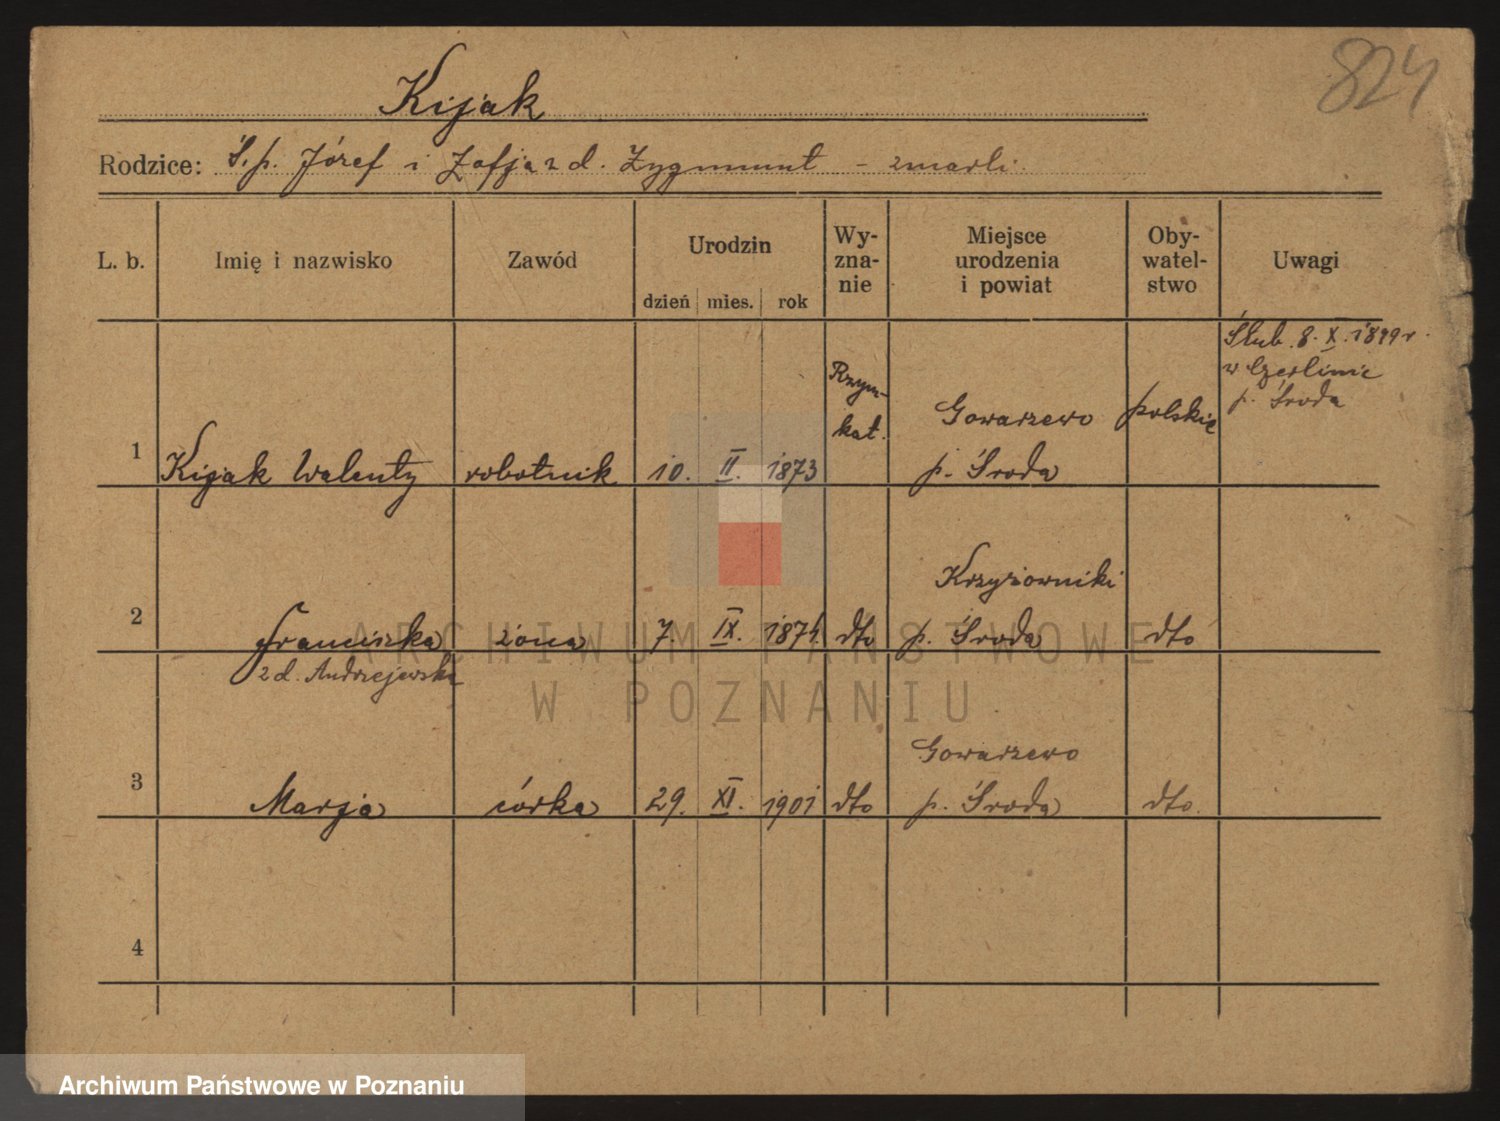 824
Kijak
Rodzice: Ś. p. Józef i Zofja z d. Zygmunt - zmarli.
L. b. Imię i nazwisko Zawód Urodzin Wy-zna-nie Miejsce urodzenia i powiat Oby-watel-stwo Uwagi
dzień mies. rok
Ślub 8. X. 1899 r.
w Czerlinie
p. Środa
Rzym-
kat. Gowarzewo polskie
1 Kijak Walenty robotnik 10. II. 1873 p. Środa
Krzyżowniki
2 Franciszka żona 7. IX. 1874 dto p. Środa dto
z d. Andrzejewska
Gowarzewo
3 Marja córka 29. XI. 1901 dto p. Środa dto.
4
ARCHIWUM PAŃSTWOWE
W POZNANIU
Archiwum Państwowe w Poznaniu